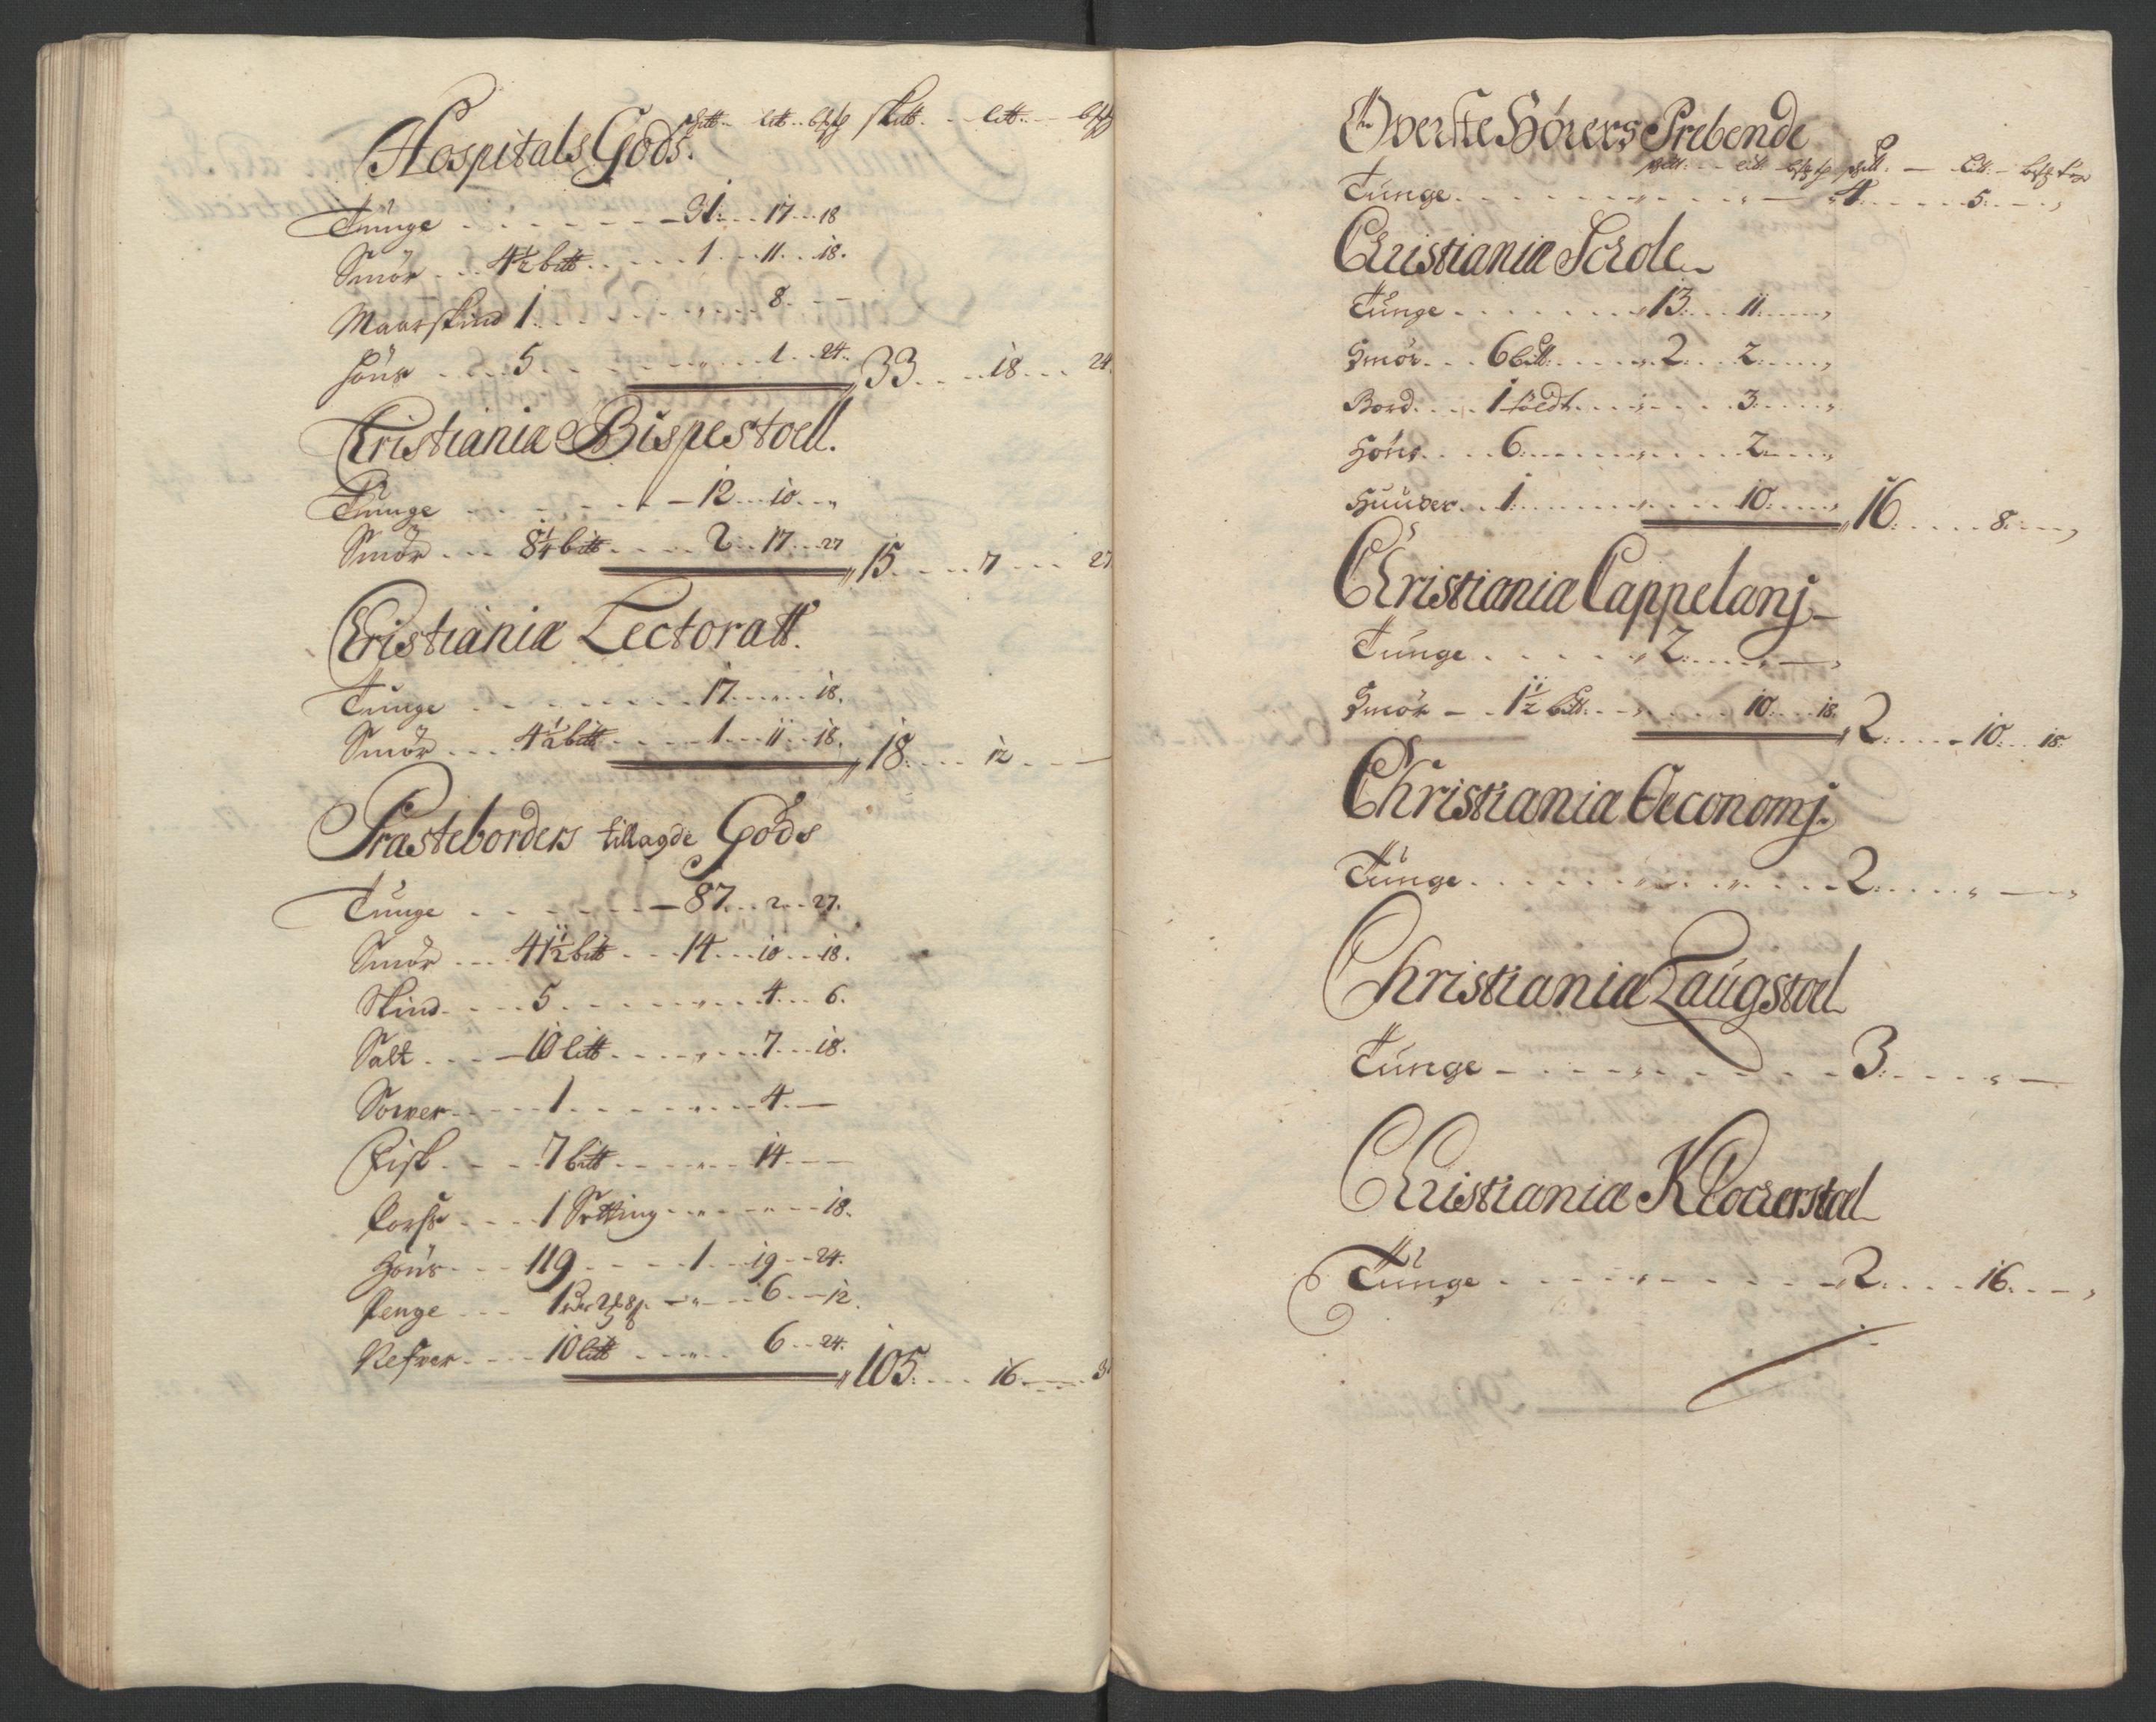 Hospitals Gods. Sktt. - - Ltt. - -
Sktt. - - Ltt. - -
Tunge - - - - - - 31 - - 17 - - 18
Smör - - 4½ bltt - - - - 1 - - 11 - - 18.
Maarskind 1 - - - - - - " - - 8. - -
Höns - - - 5 - - - - - " - - 1 - - 24. 33 - - 18 - - 24
Cristianiæ Bispestoell.
Tunge - - - - - - 12 - - 10 - - "
Smör - - - 8¼ bltt - - - - 2 - - 17 - - 27 15 - - - 7 - - - 27
Cristianiæ Lectoratt.
Tunge - - - - - - - 17 - - " - - 18.
Smör - - - 4½ bltt - - - - 1 - - 11 - - 18. 18 - - - 12 - - -
Præsteborders tillagde Gods
Tunge - - - - - - 87 - - 2 - - 27.
Smör - - - 41½ bltt - - 14 - - 10 - - 18.
Skind - - - 5 - - - - - " - - 4 - - 6.
Salt - - - 10 ltt - - - - " - - 7 - - 18.
Sower - - - 1 - - - - - " - - 4. —
Fisk - - - 7 bltt - - - - " - - 14 - —
Korsse - - - 1 Setting - - " - - " - - 18.
Höns - - - 119 - - - - 1 - - 19 - - 24.
Penge - - - 1 - - " - - 6 - - 12.
Nefver - - - 10 ltt - - - " - - 6 - - 24. 105 - - - 16 - - - 3
Øverste Hörers Prebende
Skltt. - - Ltt. Skltt. - Ltt. -
Tunge - - - - - - " - - - " - 4 - - - - 5 - - - "
Christianiæ Schole
Tunge - - - - - - - 13 - - 11 - - - "
Smör - - 6 bltt - - - - 2 - - 2 - - - "
Bord - - - 1 töldt - - - " - - 3 - - - "
Höns - - - 6 - - - - - " - - 2 - - - "
Huuder - - 1 - - - - - " - - 10 - - - " 16 - - - - 8 - - "
Christianiæ Cappelanj
Tunge - - - - - " 2 - - - " — "
Smör - - 1½ bltt - - " - - - 10 - - 18. 2 - - - 10 - - 18.
Christianiæ Oeconomj.
Tunge - - - - - - " - - - " - - - 2 - - - - " — "
Christianiæ Laugstoel
Tunge - - - - - " - - - - - 3 - - - - " —
Christianiæ Klockerstoel
Tunge - - - - - " - - - - - 2 - - - 16 - - "